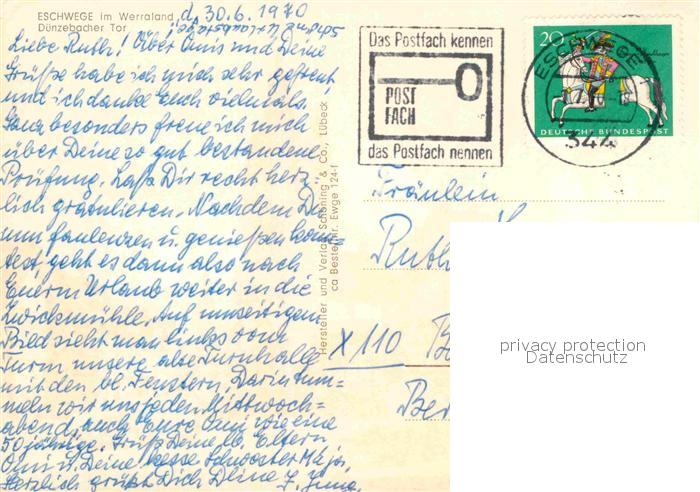 ESCHWEGE im Werraland
Dünzebacher Tor
d. 30.6.1970
Liebe Ruth! Über Omis und Deine
Grüße habe ich mich sehr gefreut
und ich danke Euch vielmals.
Ganz besonders freue ich mich
über Deine so gut bestandene
Prüfung. Laß Dir recht herz-
lich gratulieren. Nachdem Du
nun faulenzen u. genießen konn-
test geht es dann also nach
Euerm Urlaub weiter in die
Zwickmühle. Auf umseitigem
Bild sieht man links vom
Turm unsere alte Turnhalle
mit den bl. Fenstern. Darin tum-
meln wir uns jeden Mittwoch-
abend, auch Eure Omi wie eine
50jährige. Grüß Deine lb. Eltern
Omi u. Deine kesse Schwester
Herzlich grüßt Dich Deine J. Jung.
schöne Urlaubstage!
Hersteller und Verlag Schöning & Co., Lübeck
Bestell-Nr. Ewge 124
Das Postfach kennen
POST
FACH
das Postfach nennen
ESCHWEGE
344
20
DEUTSCHE BUNDESPOST
Fräulein
Ruth
X 110
Ber
privacy protection
Datenschutz